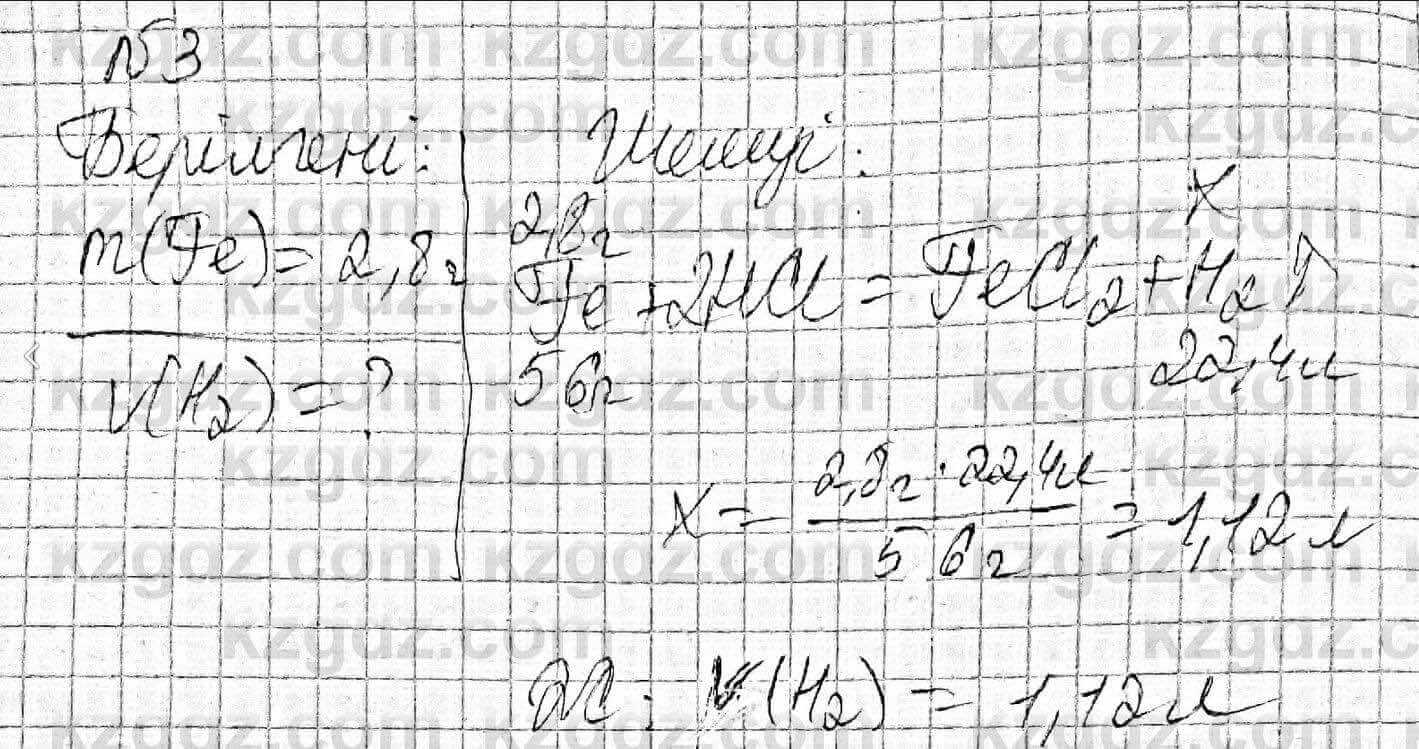 №3
Берілгені:
m(Fe)=2,8г
V(H₂)=?
Шешуі:
2,8г X
Fe+2HCl=FeCl₂+H₂↑
56г 22,4л
X=2,8г·22,4л/56г=1,12л
Ж: V(H₂)=1,12л
kzgdz.com